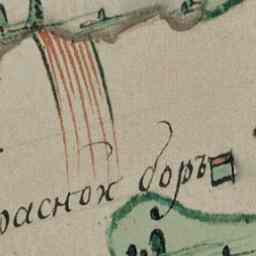 раснои боръ